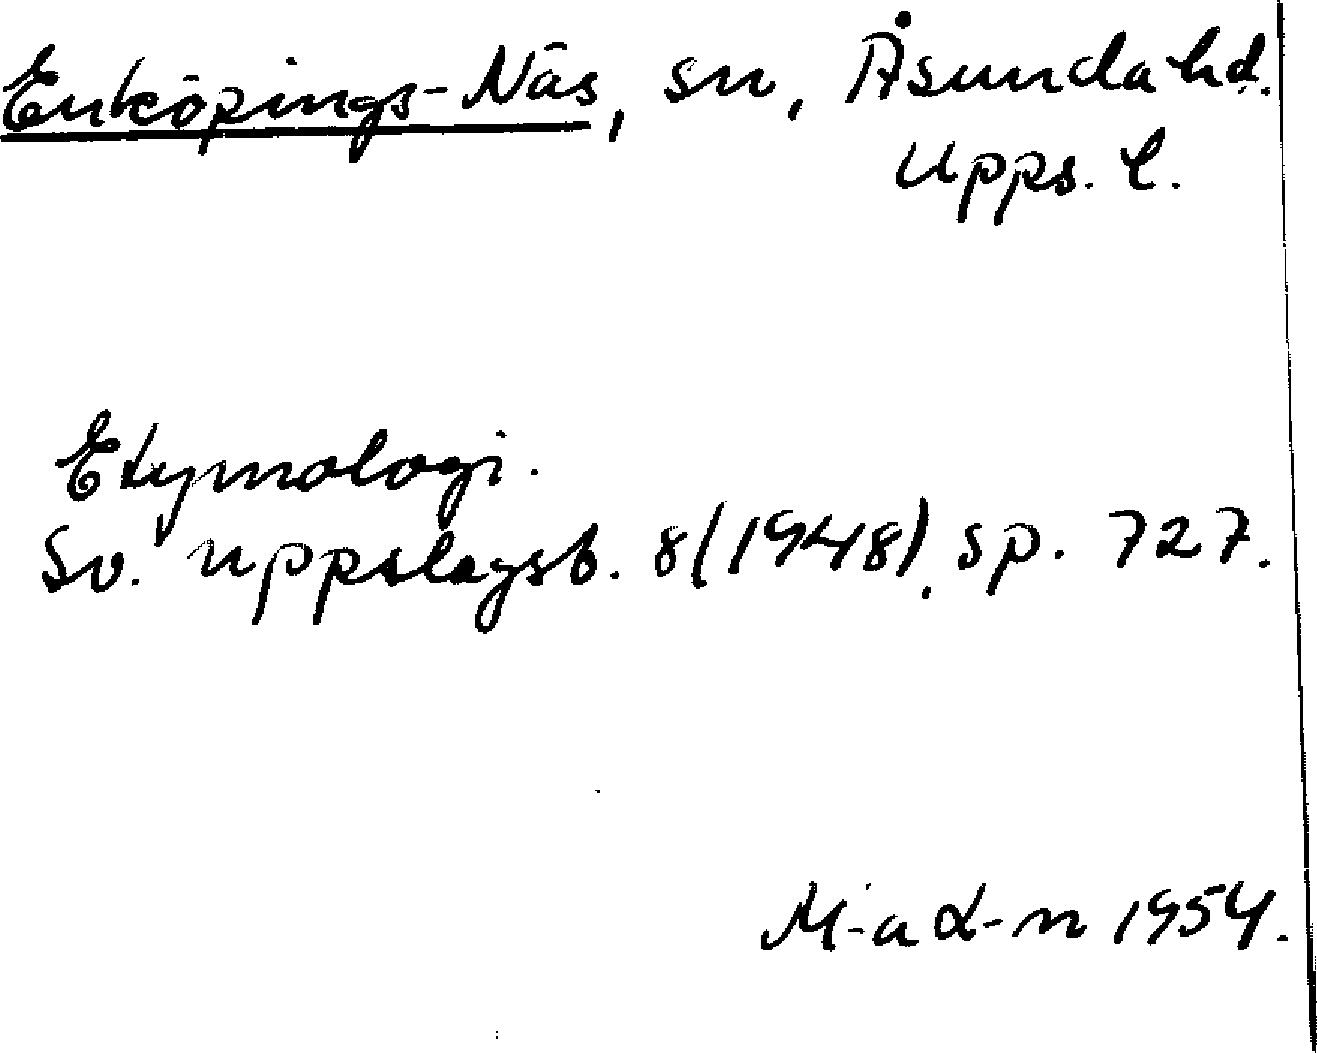 Enköpings-Näs, sn, Åsunda hd.
Upps. l.
Etymologi.
Sv. uppslagsb. 8 (1948), sp. 727.
M-a d-n 1954.